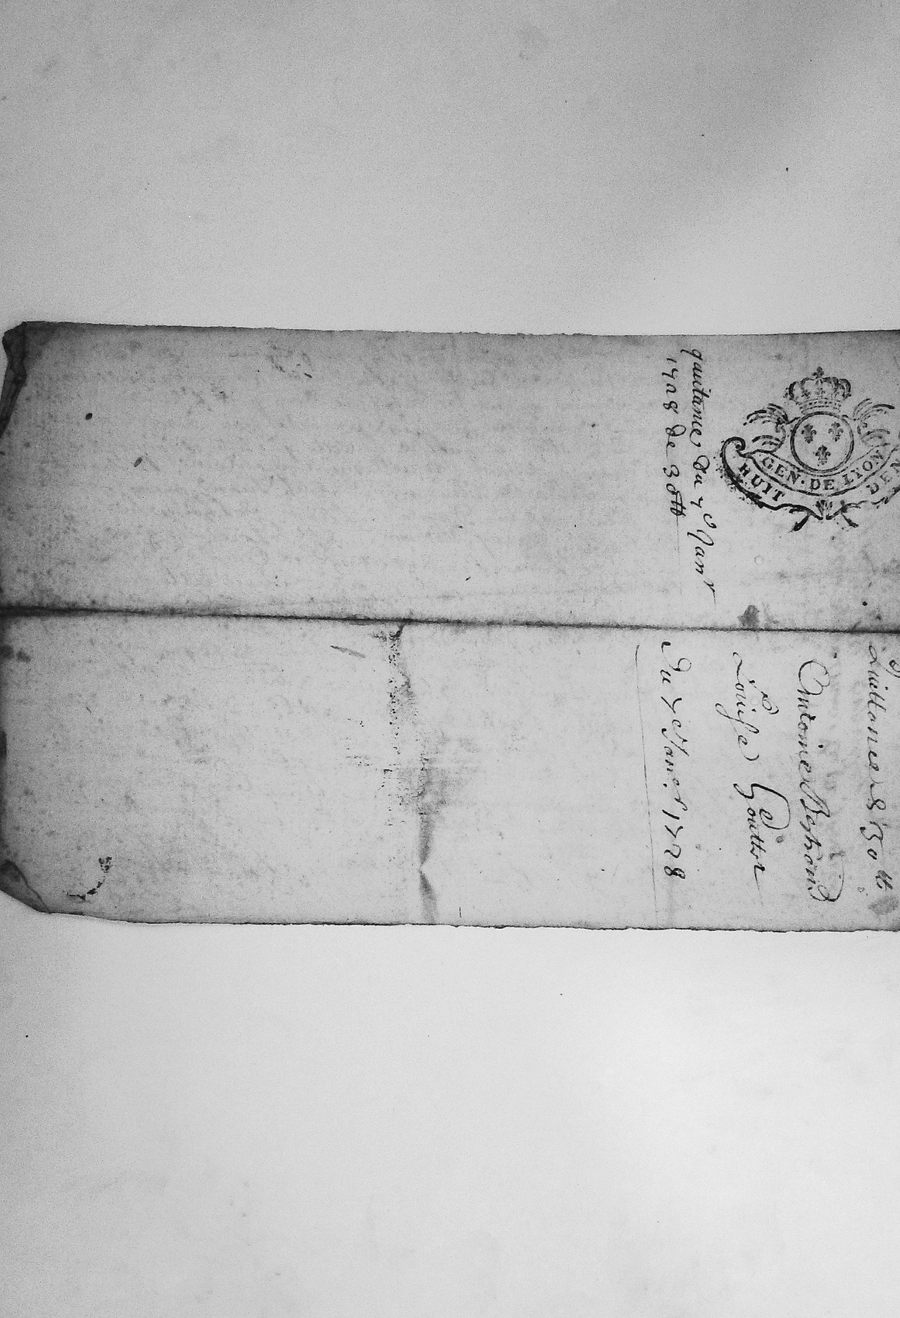 GEN·DE LYON
HUIT DEN
quittance du 7e Janr
1728 de 30 tt
Quittance de 30 tt
Antoine
Louise Goutter
Du 7e Janr. 1728